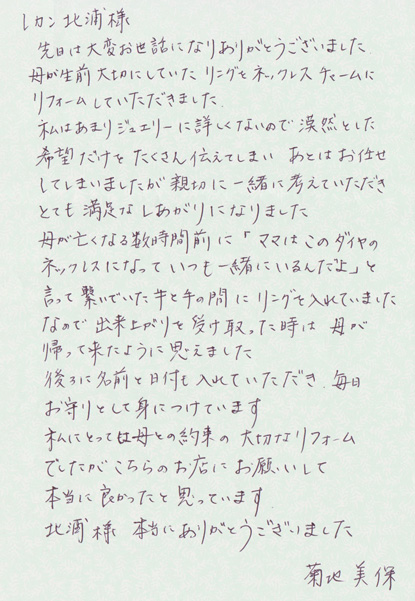 レカン 北浦様
先日は大変お世話になりありがとうございました.
母が生前大切にしていた リングをネックレス チャームに
リフォームしていただきました.
私はあまりジュエリーに詳しくないので 漠然とした
希望だけを たくさん伝えてしまい あとは お任せ
してしまいましたが 親切に 一緒に考えていただき
とても 満足な しあがりに なりました
母が亡くなる数時間前に 「ママは このダイヤの
ネックレスになって いつも 一緒にいるんだよ」と
言って 繋いでいた 手と手の間に リングを入れていました
なので 出来上がりを 受け取った時は 母が
帰って来たように 思えました
後ろに 名前と日付も入れていただき. 毎日
お守りとして 身につけています
私にとっては母との約束の 大切な リフォーム
でしたが こちらのお店に お願いして
本当に良かったと 思っています.
北浦様 本当にありがとうございました
菊地 美保